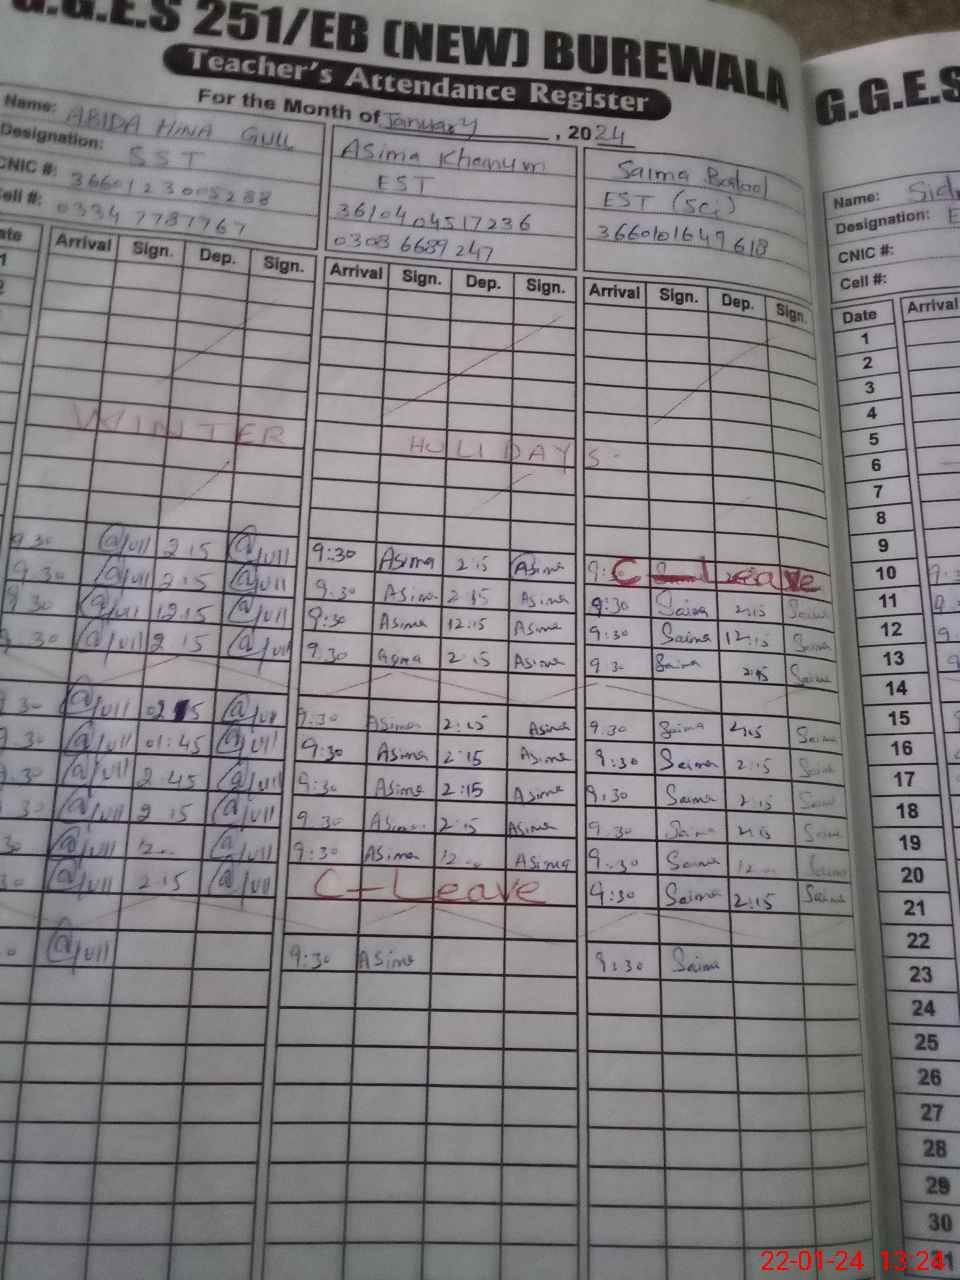 G.G.E.S 251/EB (NEW) BUREWALA
Teacher's Attendance Register
For the Month of January, 2024
Name: ABIDA HINA GULL
Designation: SST
CNIC #: 3660123005288
Cell #: 03347787767
Asima Khanum
EST
3610404517236
0308 6689247
Saima Batool
EST (Sci)
3660101649618
Date Arrival Sign. Dep. Sign. Arrival Sign. Dep. Sign. Arrival Sign. Dep. Sign.
1
2
WINTER HOLIDAYS.
9 30 @/ull 2 15 @/ull 9:30 Asima 2:15 Asima 9: C Leave
9 30 @/ull 2:15 @/ull 9:30 Asima 2:15 Asima 9:30 Saima 2:15 Saima
9 30 @/ull 12:15 @/ull 9:30 Asima 12:15 Asima 9:30 Saima 12:15 Saima
9 30 @/ull 2 15 @/ull 9:30 Asma 2:15 Asima 9 30 Saima 2:15 Saima
9 30 @/ull 02 15 @/ull 9:30 Asima 2:15 Asima 9:30 Saima 2:15 Saima
9 30 @/ull 01:45 @/ull 9:30 Asima 2:15 Asima 9:30 Saima 2:15 Saima
9 30 @/ull 2 45 @/ull 9:30 Asima 2:15 Asima 9:30 Saima 2:15 Saima
30 @/ull 2 15 @/ull 9 30 Asima 2:15 Asima 9:30 Saima 2:15 Saima
30 @/ull 12 @/ull 9:30 Asima 12 Asima 9:30 Saima 12 Saima
30 @/ull 2:15 @/ull C-Leave 9:30 Saima 2:15 Saima
@/ull 9:30 Asima 9:30 Saima
G.G.E.S
Name:
Designation: E
CNIC #:
Cell #:
Date Arrival
1
2
3
4
5
6
7
8
9
10
11
12
13
14
15
16
17
18
19
20
21
22
23
24
25
26
27
28
29
30
31
22-01-24 13:24